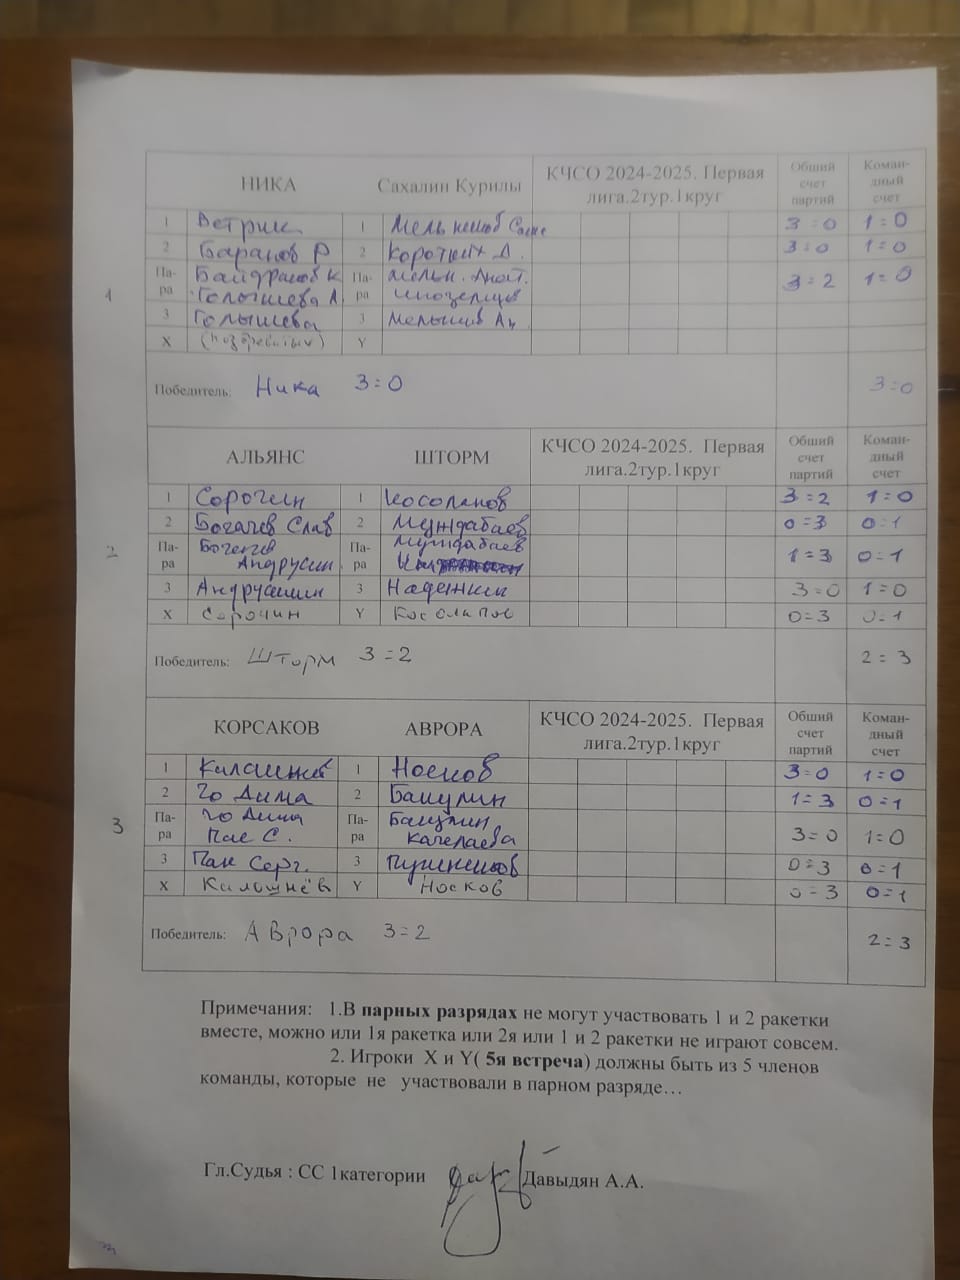 НИКА Сахалин Курилы КЧСО 2024-2025. Первая лига.2тур.1круг Общий счет партий Коман-дный счет
1 Ветрик 1 Мельников Саше 3=0 1=0
2 Баранов Р 2 Коротких Д. 3=0 1=0
1 Па-ра Байдраков К Па-ра Мельн. Анат. 3=2 1=0
Голышева Л. Иноземцев
3 Голышева 3 Мельников Ан
X Y
Победитель: Ника 3=0 3=0
АЛЬЯНС ШТОРМ КЧСО 2024-2025. Первая лига.2тур.1круг Общий счет партий Коман-дный счет
1 Сорочин 1 Косолапов 3=2 1=0
2 Богачев Слав 2 Мундабаев 0=3 0=1
2 Па-ра Богачев Па-ра Мундабаев 1=3 0=1
Андрусин
3 Андрусишин 3 Надежкин 3=0 1=0
X Сорочин Y Косолапов 0=3 0=1
Победитель: Шторм 3=2 2=3
КОРСАКОВ АВРОРА КЧСО 2024-2025. Первая лига.2тур.1круг Общий счет партий Коман-дный счет
1 Калашнёв 1 Носков 3=0 1=0
2 Чо Дима 2 Башулин 1=3 0=1
3 Па-ра Чо Дима Па-ра Башулин 3=0 1=0
Пак С. Качелаева
3 Пак Серг. 3 0=3 0=1
X Калашнёв Y Носков 0=3 0=1
Победитель: Аврора 3=2 2=3
Примечания: 1.В парных разрядах не могут участвовать 1 и 2 ракетки
вместе, можно или 1я ракетка или 2я или 1 и 2 ракетки не играют совсем.
2. Игроки X и Y( 5я встреча) должны быть из 5 членов
команды, которые не участвовали в парном разряде…
Гл.Судья : СС 1категории Давыдян А.А.